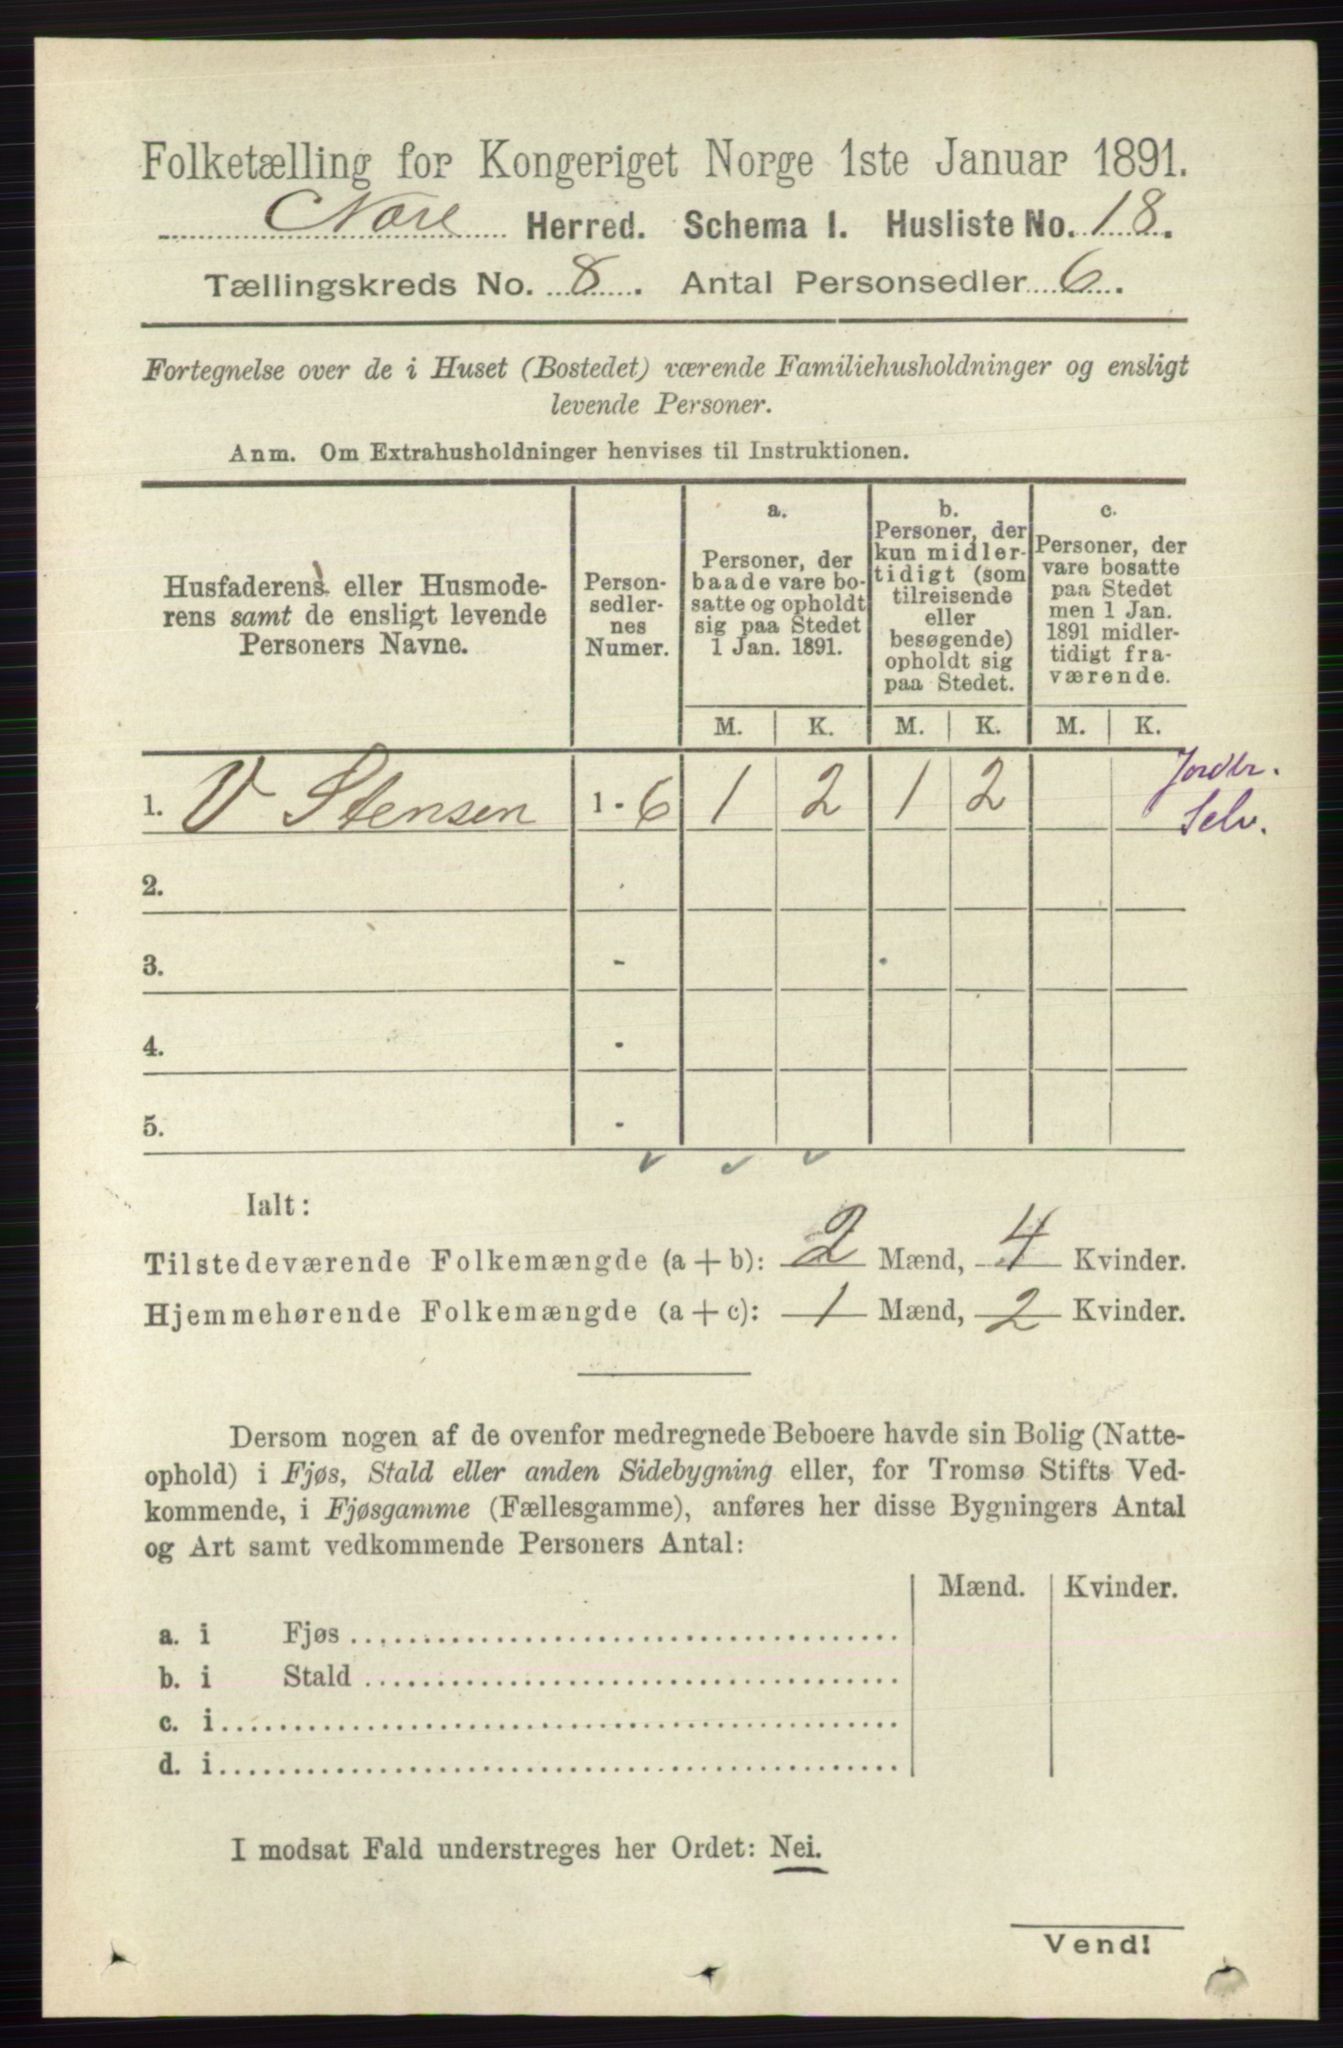 Folketælling for Kongeriget Norge 1ste Januar 1891.
Nore Herred. Schema I. Husliste No. 18.
Tællingskreds No. 8. Antal Personsedler 6.
Fortegnelse over de i Huset (Bostedet) værende Familiehusholdninger og ensligt
levende Personer.
Anm. Om Extrahusholdninger henvises til Instruktionen.
Husfaderens eller Husmode-
rens samt de ensligt levende
Personers Navne.
Person-
sedler-
nes
Numer.
a.
Personer, der
baade vare bo-
satte og opholdt
sig paa Stedet
1 Jan. 1891.
b.
Personer, der
kun midler-
tidigt (som
tilreisende
eller
besøgende)
opholdt sig
paa Stedet.
c.
Personer, der
vare bosatte
paa Stedet
men 1 Jan.
1891 midler-
tidigt fra-
værende.
M. K. M. K. M. K.
1. V Stensen 1 - 6 1 2 1 2 Jordbr.
Selv.
2.
3. -
4. -
5. -
Ialt:
Tilstedeværende Folkemængde (a + b): 2 Mænd, 4 Kvinder.
Hjemmehørende Folkemængde (a + c): 1 Mænd, 2 Kvinder.
Dersom nogen af de ovenfor medregnede Beboere havde sin Bolig (Natte-
ophold) i Fjøs, Stald eller anden Sidebygning eller, for Tromsø Stifts Ved-
kommende, i Fjøsgamme (Fællesgamme), anføres her disse Bygningers Antal
og Art samt vedkommende Personers Antal:
Mænd. Kvinder.
a. i Fjøs
b. i Stald
c. i
d. i
I modsat Fald understreges her Ordet: Nei.
Vend!